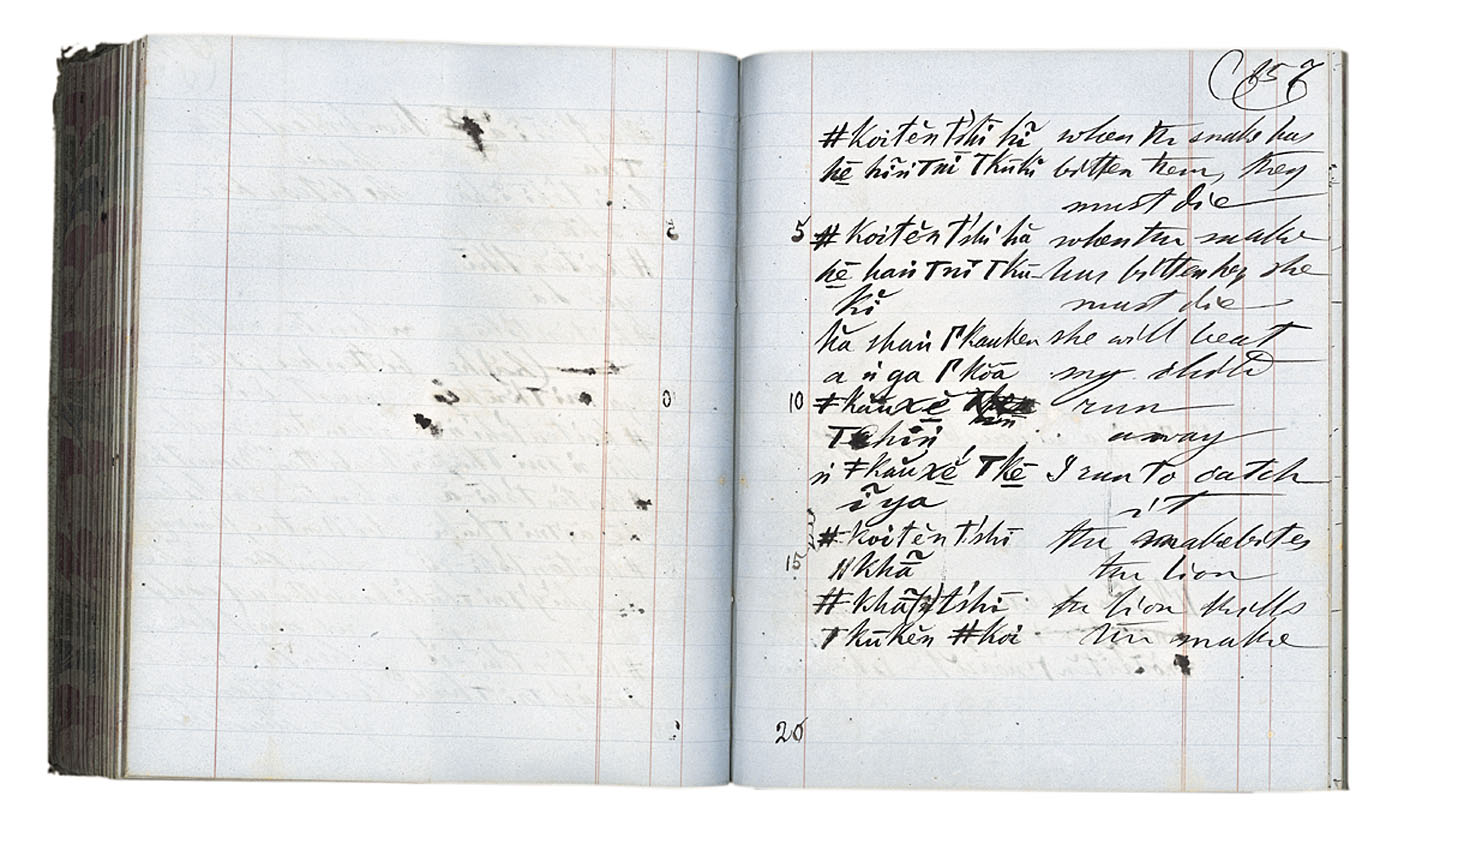 157
#Koitĕn Tʹshi hĭ̃ when the snake has
hē hĭñ Tnĭ Tkūkĭ bitten them, they
must die
5 # Koitĕn Tʹshi hă when the snake
hē hañ Tnĭ Tkū- has bitten her she
kĭ must die
hă shañ Γkauken she will beat
a ñ ga Γkõa my child
10 ǂkăuxĕ run
hĭñ away
ñ ǂkăuxĕ Tkē I run to catch
ĭ̃ ya it
#-koitĕn Tʹshi the snake bites
15 //khã the lion
#-khã tʹshi the lion kills
Tkūkĕn #koi the snake
20